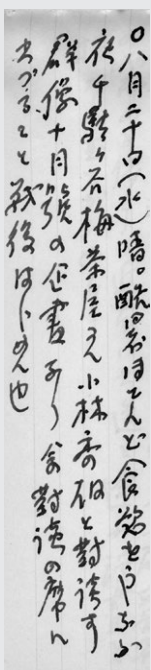 〇八月二十四日(水)晴。酷暑ほとんど食慾をうしなふ
夜千駄ヶ谷梅茶屋にて小林秀雄と対談す
群像十月號の企畫なり 余対談の席に
出づること戦後はじめて也